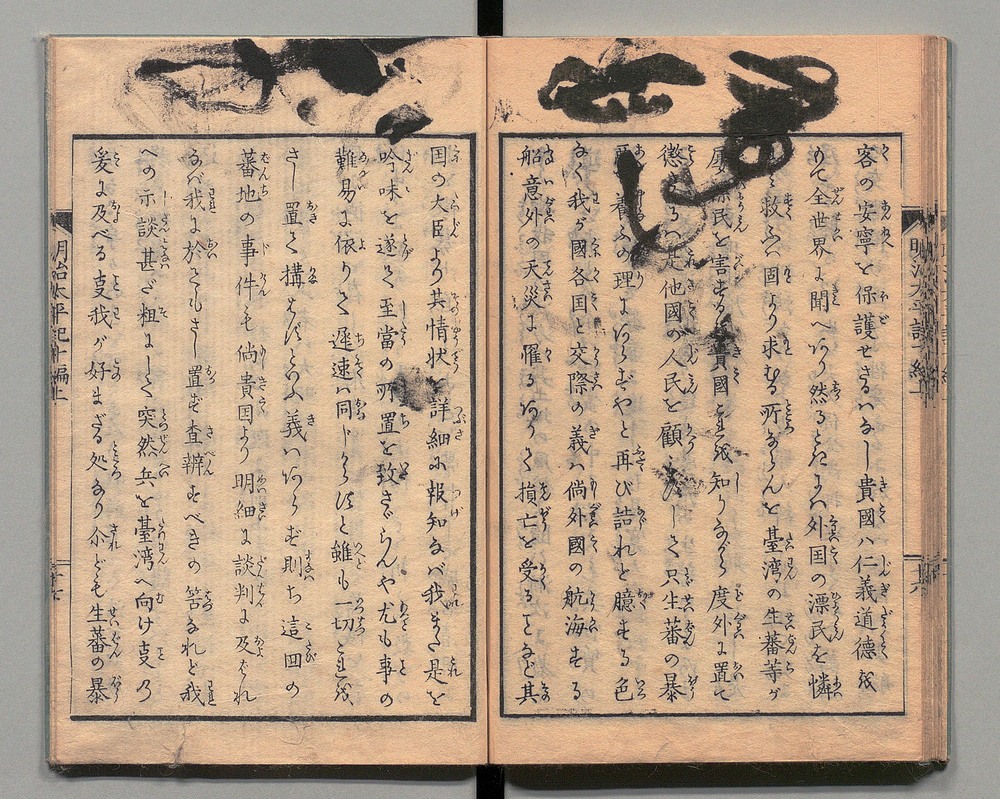 客の安寧を保護せざるハなし貴國ハ仁義道徳を
もて全世界に聞へあり然るときハ外国の漂民を憐
救ふハ固より求むる所ならんを臺湾の生蕃等が
漂民を害する貴國これを知りながら度外に置て
懲さゞるハ其他國の人民を顧ずして只生蕃の暴
養ふの理にあらずやと再び詰れと臆する色
なく我が國各国と交際の義ハ倘外國の航海する
船意外の天災に罹るありて損亡を受ることなど其
国の大臣より其情状を詳細に報知なバ我また是を
吟味を遂て至當の所置を致さゞらんや尤も事の
難易に依りて遅速ハ同じからずと雖も一切これを
さし置て構はずといふ義ハあらず則ち這回の
蕃地の事件も倘貴国より明細に談判に及ばれ
なば我に於てもさし置ず査辨すべきの筈なれど我
への示談甚だ粗にして突然兵を臺湾へ向け支乃
爰に及べる支我が好まざる処なり尒ども生蕃の暴
明治太平記十編上